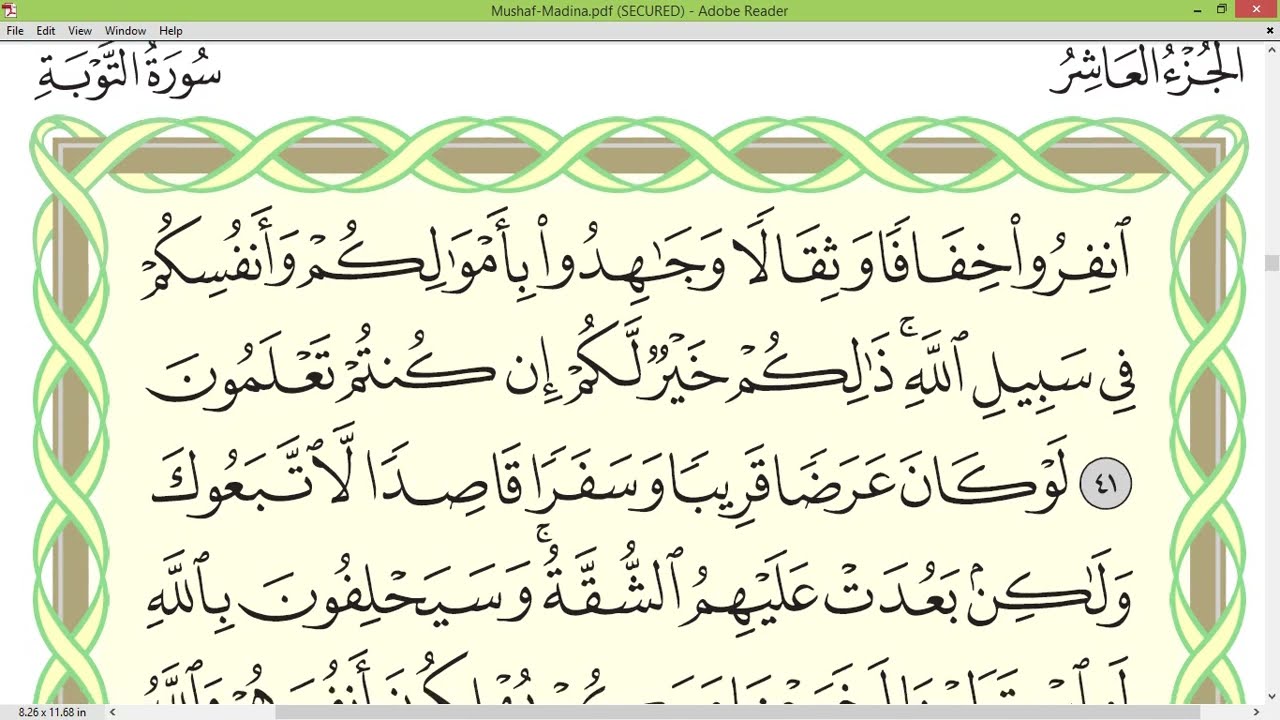 Mushaf-Madina.pdf (SECURED) - Adobe Reader
File Edit View Window Help
الجُزْءُ العَاشِرُ سُورَةُ التَّوْبَةِ
ٱنفِرُوا۟ خِفَافًا وَثِقَالًا وَجَـٰهِدُوا۟ بِأَمْوَٰلِكُمْ وَأَنفُسِكُمْ
فِى سَبِيلِ ٱللَّهِ ۚ ذَٰلِكُمْ خَيْرٌ لَّكُمْ إِن كُنتُمْ تَعْلَمُونَ
٤١ لَوْ كَانَ عَرَضًا قَرِيبًا وَسَفَرًا قَاصِدًا لَّٱتَّبَعُوكَ
وَلَـٰكِنۢ بَعُدَتْ عَلَيْهِمُ ٱلشُّقَّةُ ۚ وَسَيَحْلِفُونَ بِٱللَّهِ
8.26 x 11.68 in